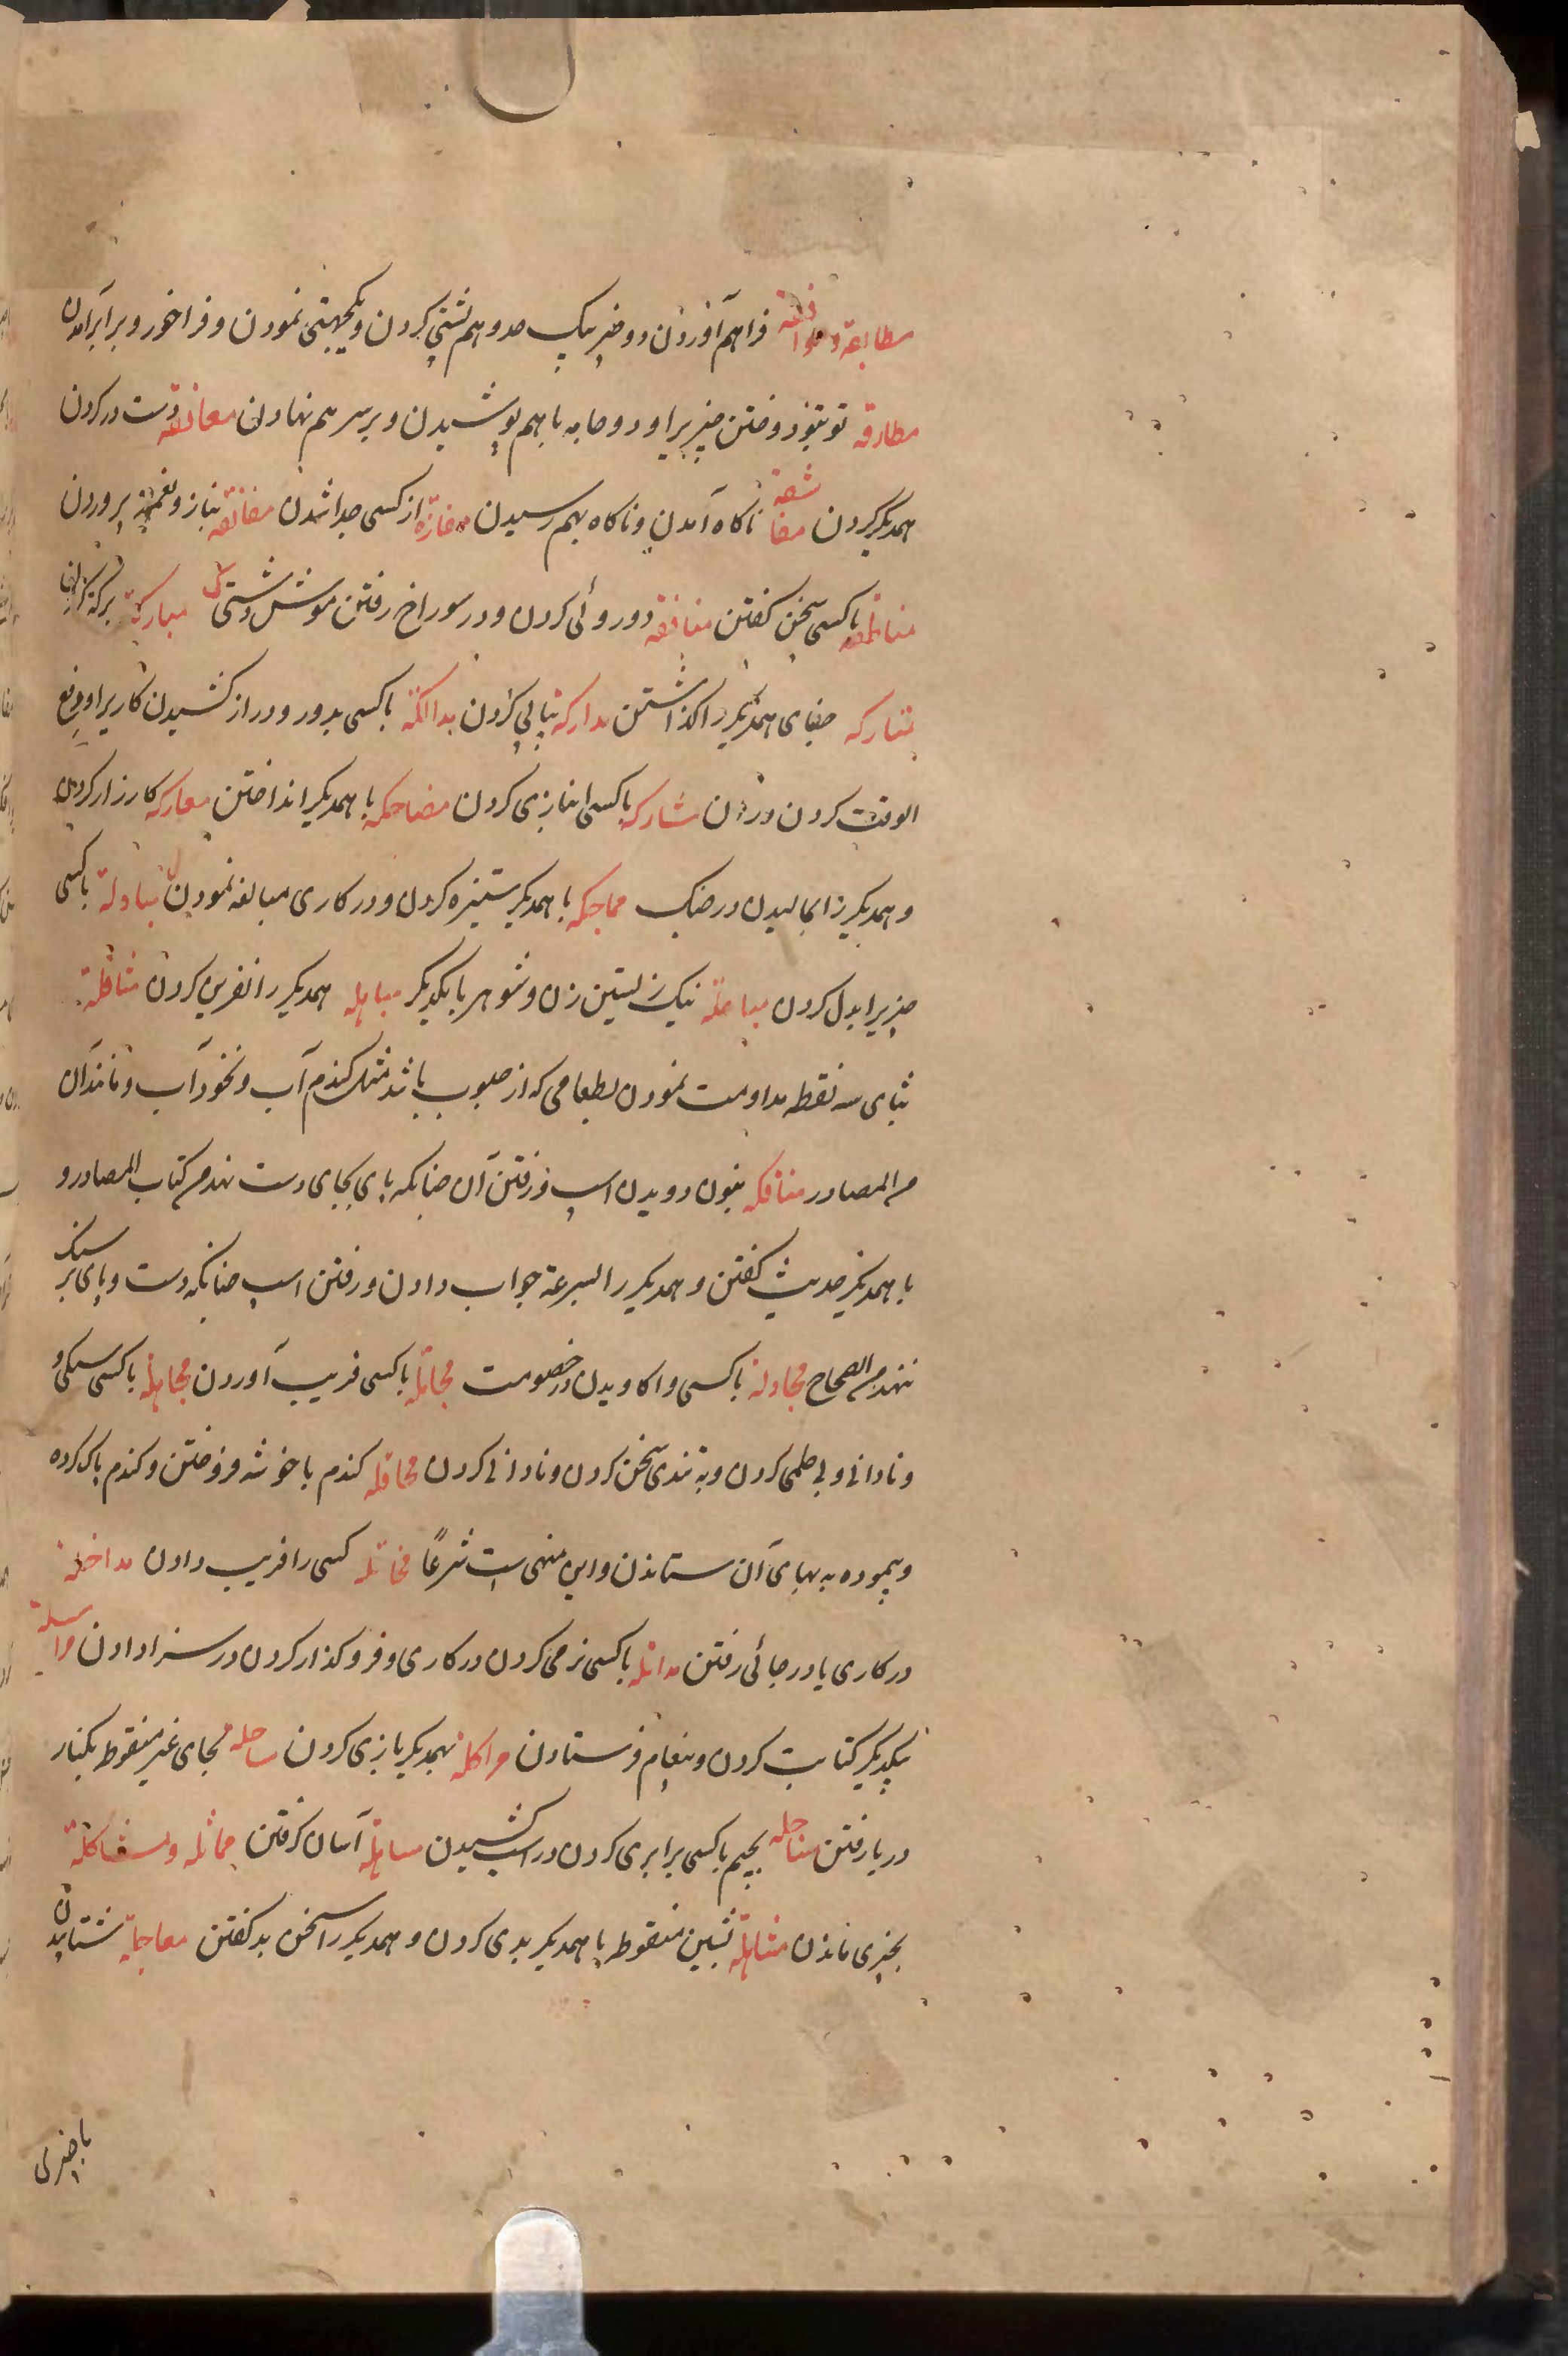 مطابقة و موافقة فراهم آوردن دو چیز بیک حد و هم پشتی کردن و یکجهتی نمودن و فراخور و برابر آمدن
مطارقه تو بتو دوختن چیزیرا و دو جامه باهم پوشیدن و بر سر هم نهادن معانقه دست در کردن
همدیگر کردن مفاشقة ناکاه آمدن و ناکاه بهم رسیدن مفارقه از کسی جدا شدن مفانقه بناز و نعمت پروردن
مناطقه باکسی سخن کفتن منافقه دوروئی کردن و در سوراخ رفتن موش دشتی مبارکة
متارکه جفای همدیگر را کذاشتن مدارکه پیاپی کردن مدالکة باکسی بدور و دراز کشیدن کاریرا و دفع
الوقت کردن در آن مشارکه باکسی انبازی کردن مضاحکه باهمدیگر انداختن معارکه کارزار کردن
و همدیگر را بمالیدن در جنک مماحکه باهمدیگر ستیزه کردن و در کاری مبالغه نمودن ل مبادلة باکسی
چیزیرا بدل کردن مباعلة نیک زیستن زن و شوهر با یکدیگر مباهله همدیگر را نفرین کردن مثافلة
بثای سه نقطه مداومت نمودن بطعامی که از حبوب باشد مثل کندم آب و نخود آب و مانند آن
من المصادر مناقله بنون دویدن اسپ و رفتن آن چنانکه پای بجای دست نهد من کتاب المصادر و
با همدیگر حدیث کفتن و همدیگر را بسرعة جواب دادن و رفتن اسپ چنانکه دست و پای بر سنک
ننهد من الصحاح مجادلة باکسی واکاویدن در خصومت مخاتله باکسی فریب آوردن مجاهلة باکسی سبکی و
و نادانی و بی حلمی کردن و به تندی سخن کردن و نادانی کردن محاقله کندم با خوشه فروختن و کندم پاک کرده
و پیموده به بهای آن ستاندن و این منهی است شرعاً مخاتله کسی را فریب دادن مداخلة
در کاری یا در جائی رفتن مدانله باکسی نرمی کردن در کاری و فروکذار کردن در سزا دادن مراسلة
بیکدیگر کتابت کردن و پیغام فرستادن مراکله بهمدیگر بازی کردن ساحله بحای غیر منقوط بکنار
دریا رفتن مساجله بجیم باکسی برابری کردن در آب کشیدن مساهلة آسان کرفتن مماثله و مشاکلة
بچیزی ماندن مشاهلة بشین منقوط با همدیگر بدی کردن و همدیگر را سخن بد کفتن معاجلة شتابیدن
با چیزی